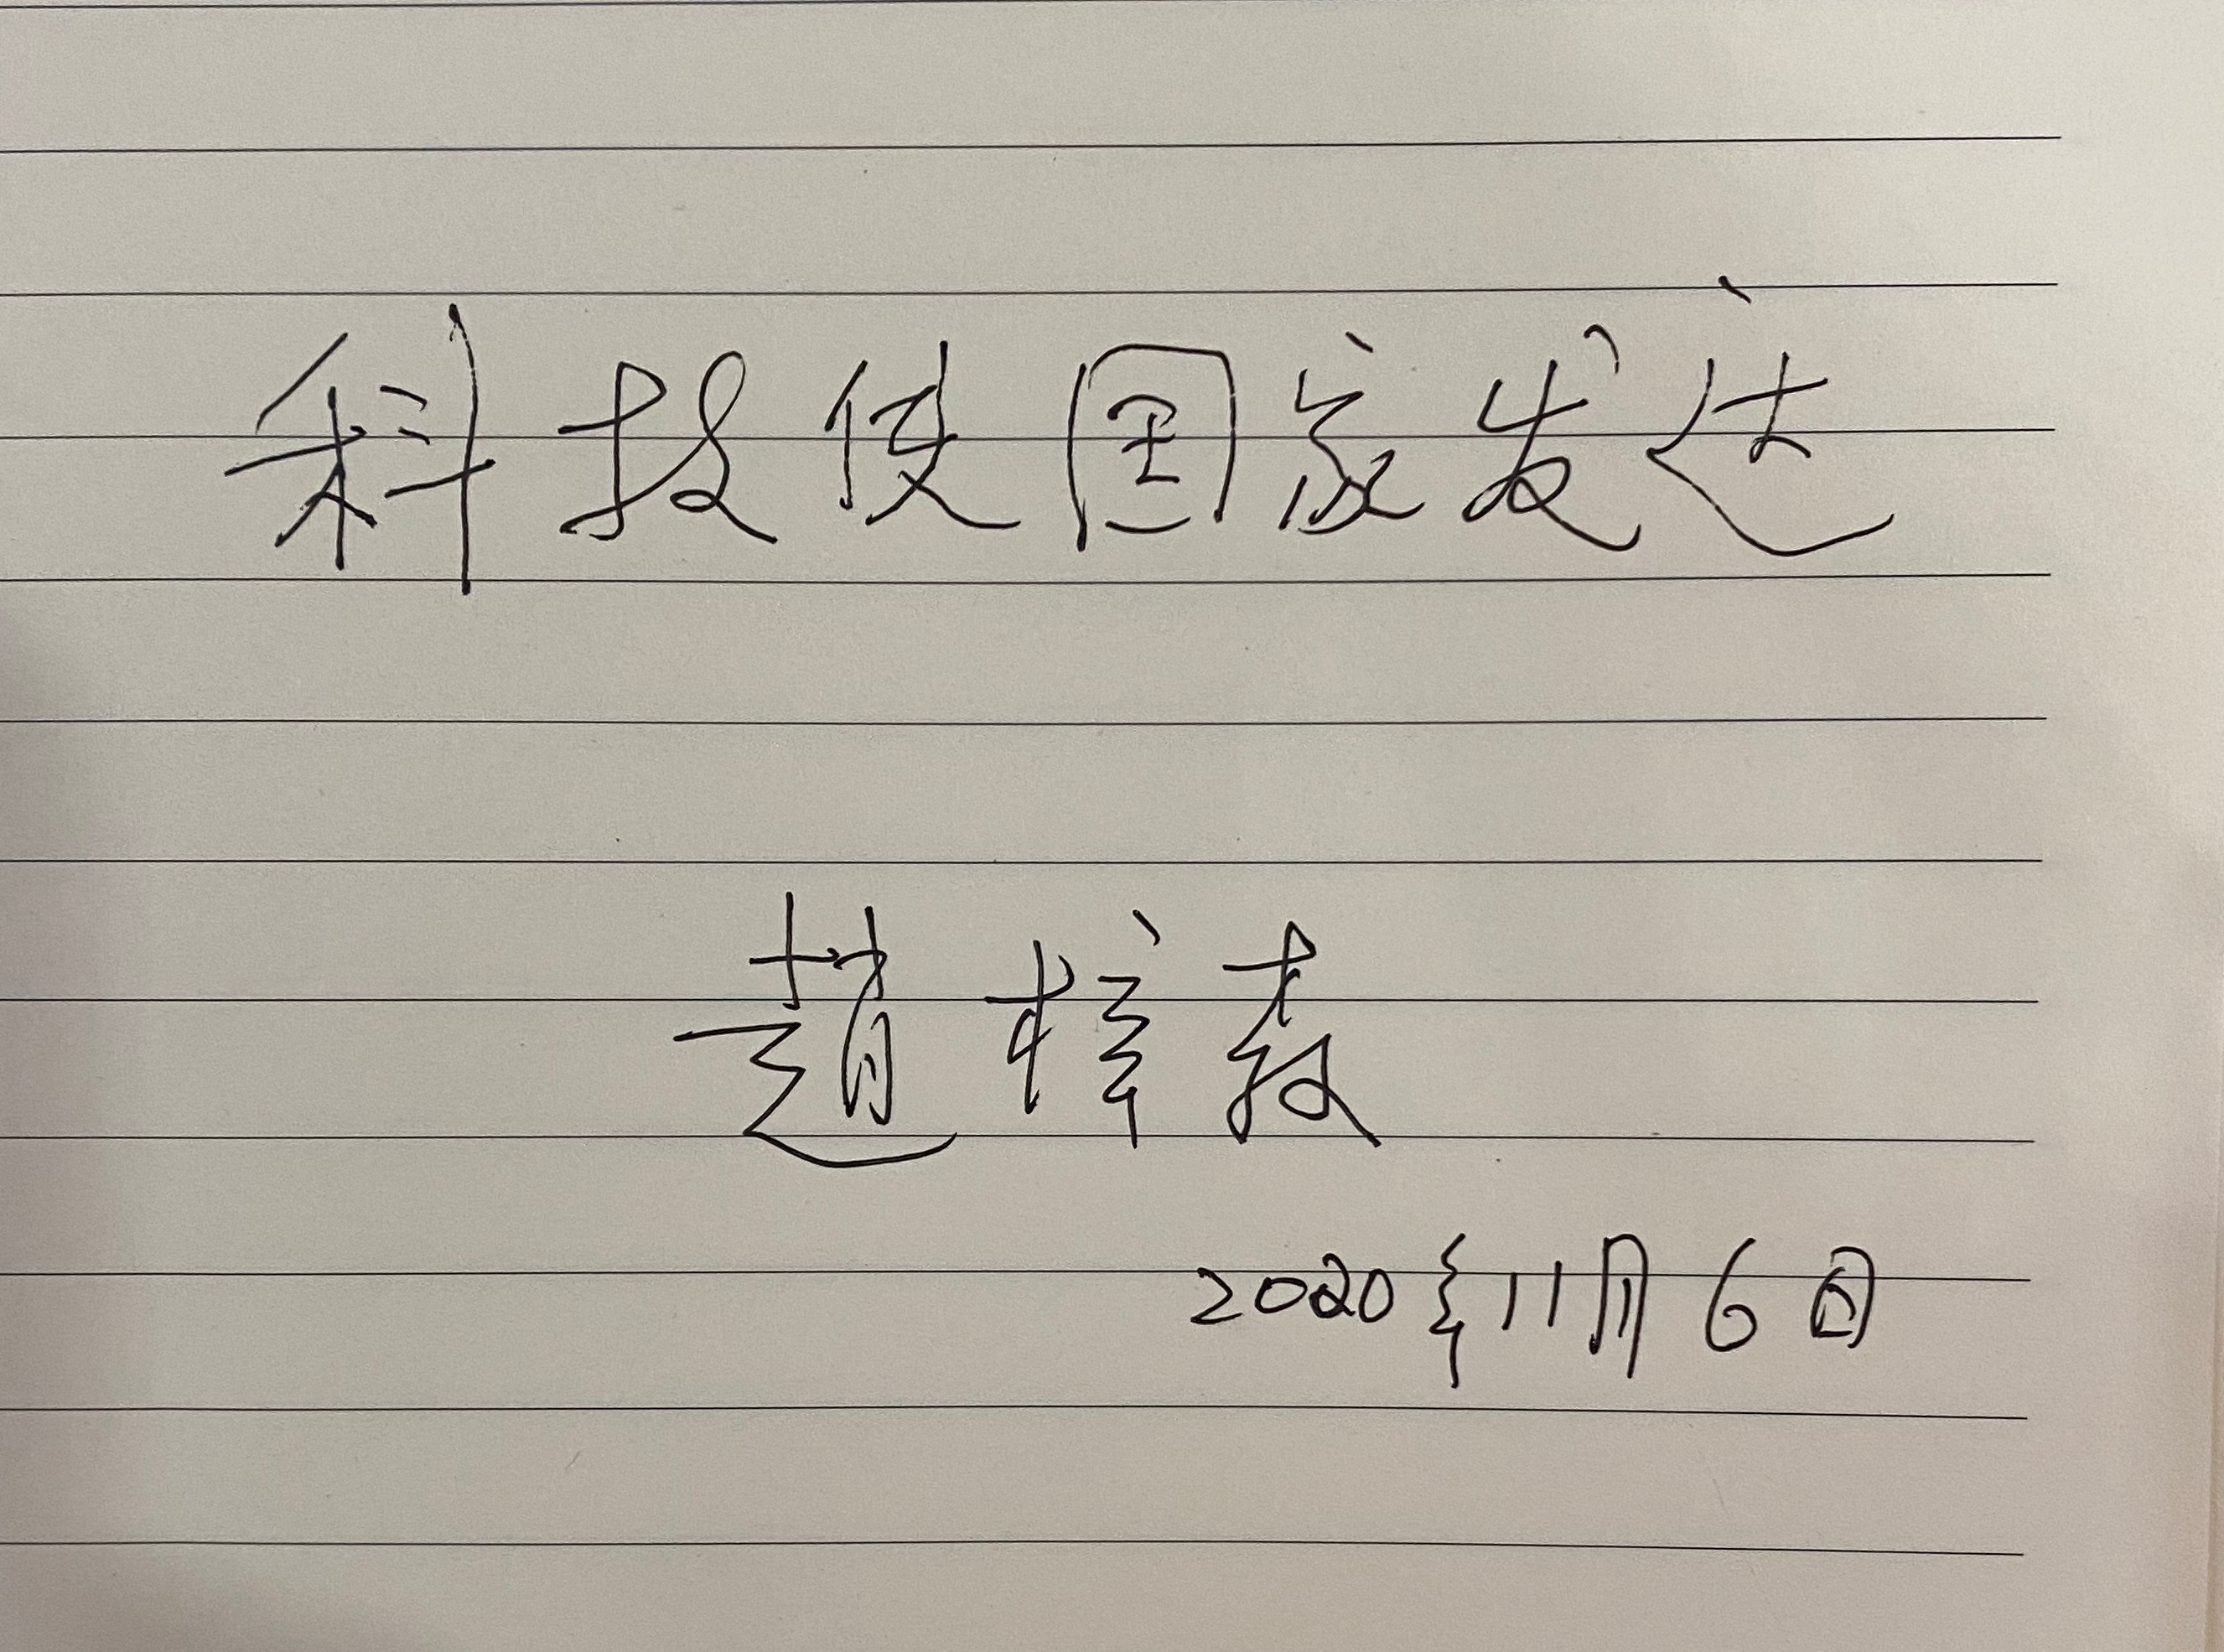 科技使国家发达
趙梓森
2020年11月6日